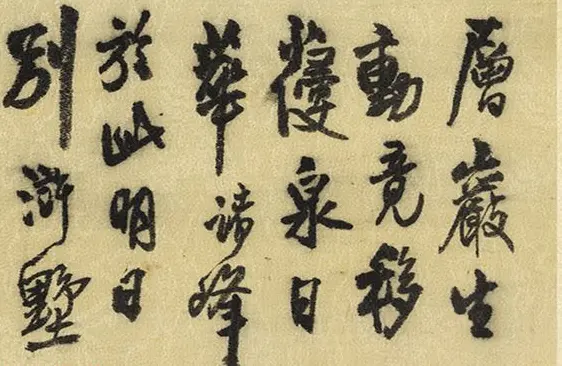 層巖生
動竟移
泉日
華諸峰
於此明日
別滸墅